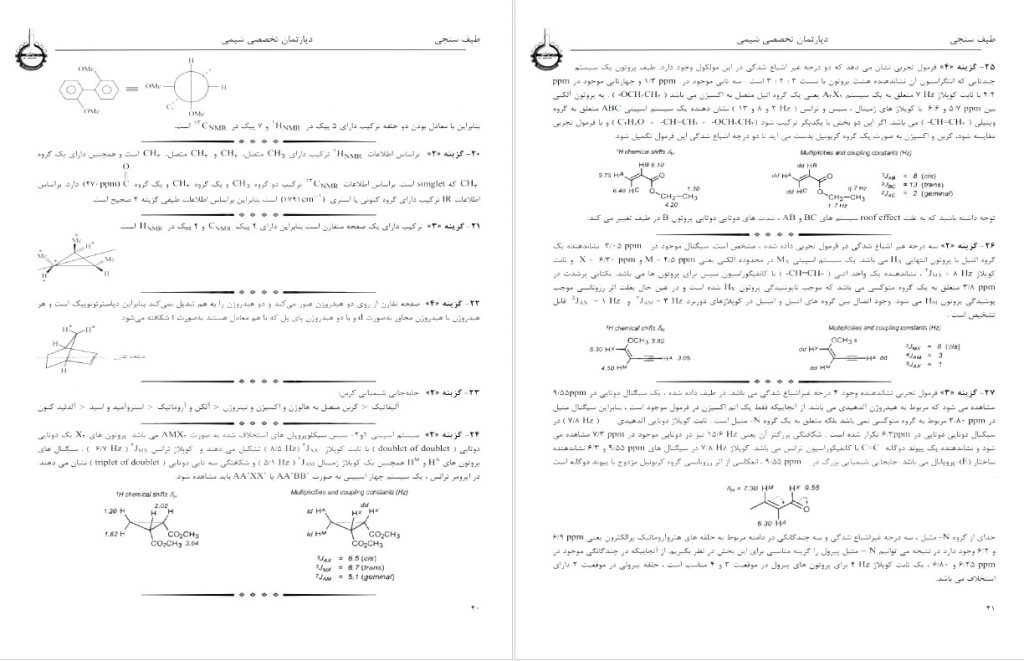 طیف سنجی
دپارتمان تخصصی شیمی
۲۵- گزینه «۴» فرمول تجربی نشان می دهد که دو درجه غیر اشباع شدگی در این مولکول وجود دارد. طیف پروتون یک سیستم
چندتایی که انتگراسیون آن نشاندهنده هشت پروتون با نسبت ۳ : ۲ : ۳ است . سه تایی موجود در ۱/۳ ppm و چهارتایی موجود در ppm
۴/۲ با ثابت کوپلاژ ۷ Hz متعلق به یک سیستم A₂X₃ یعنی یک گروه اتیل متصل به اکسیژن می باشد ( -OCH₂CH₃ ) . به پروتون آلکنی
بین ۵/۷ ppm و ۶/۶ با کوپلاژ های ژمینال ، سیس و ترانس ( ۲ Hz و ۸ و ۱۳ ) نشان دهنده یک سیستم اسپینی ABC متعلق به گروه
وینیلی ( -CH=CH₂ ) می باشد. اگر این دو بخش با یکدیگر ترکیب شود
مقایسه شود، کربن و اکسیژن به صورت یک گروه کربونیل بدست می آید تا دو درجه اشباع شدگی این فرمول تکمیل شود.
¹H chemical shifts δH
Multiplicities and coupling constants (Hz)
HB 6.10
5.75 HA
6.40 HC
O
CH₂-CH₃
1.30
4.20
dd HB
dd HA
dd HC
q 7 Hz
t 7 Hz
³JAB = 8 (cis)
³JBC = 13 (trans)
²JAC = 2 (geminal)
توجه داشته باشید که به علت roof effect سیستم های BC و AB ، شدت های دوتایی دوتایی پروتون B در طیف تغییر می کند.
۲۶- گزینه «۲» سه درجه غیر اشباع شدگی در فرمول تجربی داده شده ، مشخص است. سیگنال موجود در ۳/۰۵ ppm نشاندهنده یک
گروه اتنیل با پروتون انتهایی HA می باشد. یک سیستم اسپینی MX در محدوده الکنی یعنی M = ۴/۵ ppm و X = ۶/۳۰ ppm و ثابت
کوپلاژ ³JMX = ۸ Hz ، نشاندهنده یک واحد اتنی ( -CH=CH- ) با کانفیگوراسیون سیس برای پروتون ها می باشد. یکتایی پرشدت در
۳/۸ ppm متعلق به یک گروه متوکسی می باشد که موجب ناپوشیدگی پروتون HX شده است و در عین حال بعلت اثر رزونانسی موجب
پوشیدگی پروتون HM می شود. وجود اتصال بین گروه های اتنیل و اتینیل در کوپلاژهای دوربرد ⁴JAM = ۳ Hz و ⁵JAX = ۱ Hz قابل
تشخیص است .
¹H chemical shifts δH
Multiplicities and coupling constants (Hz)
OCH₃ 3.80
6.30 HX
HA 3.05
4.50 HM
OCH₃ s
dd HX
HA dd
dd HM
³JMX = 8 (cis)
⁴JAM = 3
⁵JAX = 1
۲۷- گزینه «۳» فرمول تجربی نشاندهنده وجود ۴ درجه غیراشباع شدگی می باشد. در طیف داده شده ، یک سیگنال دوتایی در ۹/۵۵ppm
مشاهده می شود که مربوط به هیدروژن آلدهیدی می باشد. از آنجاییکه فقط یک اتم اکسیژن در فرمول موجود است ، بنابراین سیگنال متیل
در ۳/۸۰ ppm مربوط به گروه متوکسی نمی باشد بلکه متعلق به یک گروه N- متیل است . ثابت کوپلاژ دوتایی آلدهیدی ( ۷/۸ Hz ) در
سیگنال دوتایی دوتایی در ۶/۳ppm تکرار شده است . شکافتگی بزرگتر آن یعنی ۱۵/۶ Hz نیز در دوتایی موجود در ۷/۳ ppm مشاهده می
شود و نشاندهنده یک پیوند دوگانه C=C با کانفیگوراسیون ترانس می باشد. کوپلاژ ۷/۸ Hz در سیگنال های ۹/۵۵ ppm و ۶/۳ نشاندهنده
ساختار (E)-پروپانال می باشد. جابجایی شیمیایی بزرگ در ۹/۵۵ ppm ، انعکاسی از اثر رزونانسی گروه کربونیل مزدوج با پیوند دوگانه است
.
δH = 7.30 HM
HX 9.55
O
6.30 HA
جدای از گروه N- متیل ، سه درجه غیراشباع شدگی و سه چندگانگی در دامنه مربوط به حلقه های هتروآروماتیک پرالکترون یعنی ۶/۹ ppm
و ۶/۲ وجود دارد در نتیجه می توانیم N – متیل پیرول را گزینه مناسبی برای این بخش در نظر بگیریم. از آنجاییکه در چندگانگی موجود در
۶/۲۵ ppm و ۶/۸۰ ، یک ثابت کوپلاژ ۴ Hz برای پروتون های پیرول در موقعیت ۳ و ۴ مناسب است ، حلقه پیرولی در موقعیت ۲ دارای
استخلاف می باشد.
۴۱
طیف سنجی
دپارتمان تخصصی شیمی
OMe
OMe
H
MeO
H
C
OMe
بنابراین با معادل بودن دو حلقه ترکیب دارای ۵ پیک در ¹HNMR و ۷ پیک در ¹³CNMR است.
۲۰- گزینه «۲» براساس اطلاعات ¹HNMR ترکیب دارای CH₃ متصل، CH₂ و CH₂ متصل، CH₃ است و همچنین دارای یک گروه
CH₃ که simglet است. براساس اطلاعات ¹³CNMR ترکیب دو گروه CH₃ و یک گروه CH₂ و یک گروه C (۴۷۰ ppm) دارد. براساس
اطلاعات IR ترکیب دارای گروه کتونی یا استری (۱۷۹۱ cm⁻¹) است بنابراین براساس اطلاعات طیفی گزینه ۲ صحیح است.
۲۱- گزینه «۳» ترکیب دارای یک صفحه متقارن است بنابراین دارای ۴ پیک CNMR و ۴ پیک در HNMR است.
Me
Me
H
H
H
۲۲- گزینه «۴» صفحه تقارن از روی دو هیدروژن عبور می‌کند و دو هیدروژن را به هم تبدیل نمی‌کند بنابراین دیاسترئوتوپیک است و هر
هیدروژن با هیدروژن مجاور به‌صورت d و با دو هیدروژن پای پل که با هم معادل هستند به‌صورت t شکافته می‌شود.
H
H
H
H
صفحه تقارن
۲۳- گزینه «۲» جابه‌جایی شیمیایی کربن:
آلیفاتیک < کربن متصل به هالوژن و اکسیژن و نیتروژن < آلکن و آروماتیک < استروآمید و اسید < آلدئید کتون
۲۴- گزینه «۲» سیستم اسپینی ۱و۲- سیس سیکلوپروپان های استخلاف شده به صورت AMX₂ می باشد. پروتون های X₂ یک دوتایی
دوتایی ( doublet of doublet ) با ثابت کوپلاژ ³JAX (۸/۵ Hz) تشکیل می دهند و کوپلاژ ترانس ³JMX (۶/۷ Hz) . سیگنال های
پروتون های HA و HM همچنین یک کوپلاژ ژمینال ²JAM (۵/۱ Hz) و شکافتگی سه تایی دوتایی ( triplet of doublet ) نشان می دهند.
در ایزومر ترانس ، یک سیستم چهار اسپینی به صورت AA'BB' یا AA'XX' باید مشاهده شود.
¹H chemical shifts δH
Multiplicities and coupling constants (Hz)
2.02
1.20 H
H
H
1.62 H
CO₂CH₃
CO₂CH₃ 3.64
dd
td HA
HX HX
td HM
CO₂CH₃
CO₂CH₃
³JAX = 8.5 (cis)
³JMX = 6.7 (trans)
²JAM = 5.1 (geminal)
۴۰